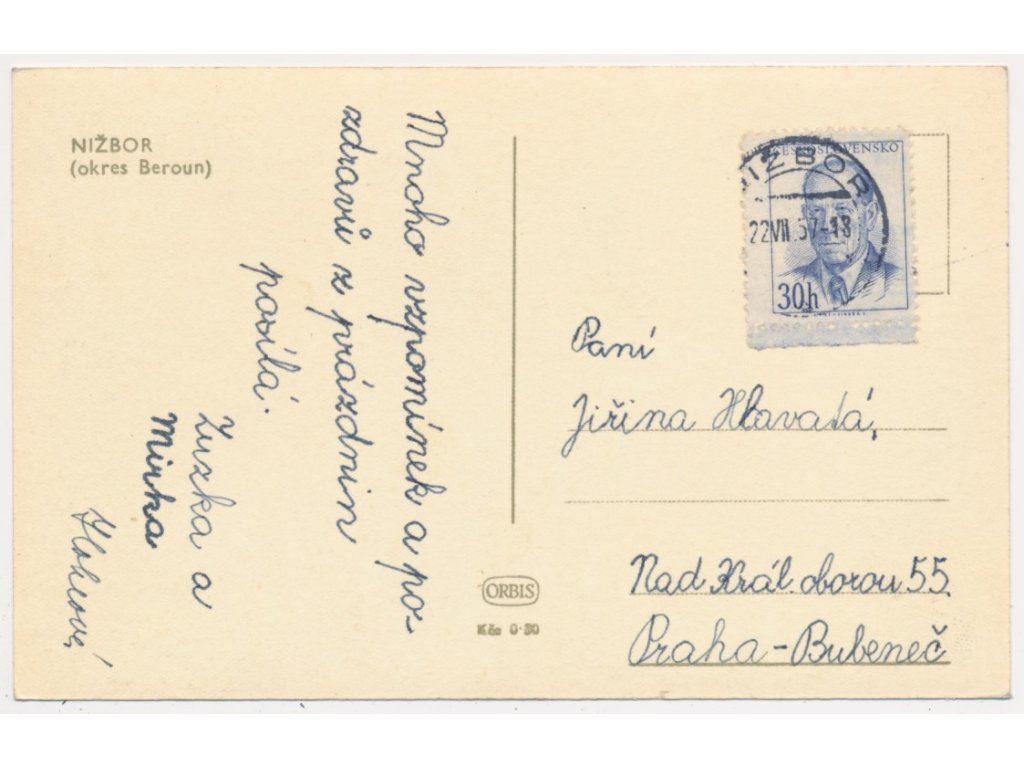 NIŽBOR
(okres Beroun)
Mnoho vzpomínek a po-
zdravů z prázdnin
posílá.
Zuzka a
Mirka
ČESKOSLOVENSKO
NIŽBOR
22.VII.57-18
30h
Paní
Jiřina Hlavatá,
Nad Král. oborou 55.
Praha-Bubeneč
ORBIS
Kčs 0·30